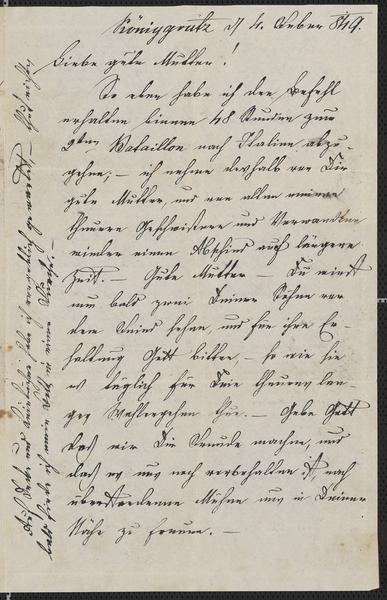 Königgrätz d 4. Feber 849.
Liebe gute Mutter!
So eben habe ich den Befehl
erhalten binnen 48 Stunden zum
2ten Bataillon nach Italien abzu-
gehen; – ich nehme deshalb von Dir
gute Mutter, und von allen meinen
theuern Geschwistern und Verwandten
wieder einen Abschied auf längere
Zeit. – Gute Mutter – Du wirst
nun bald zwei Deiner Söhne vor
dem Feinde sehen, und für ihre Er-
haltung Gott bitten, – so wie sie
es täglich für Dein theures lan-
ges Wohlergehen thun. – Gebe Gott
daß wir Dir Freude machen, und
daß es uns noch vorbehalten ist, nach
überstandenen Mühen uns in Deiner
Nähe zu freuen. –
Auf und habe ich vergeblich gewartet, –
bald finde ich in